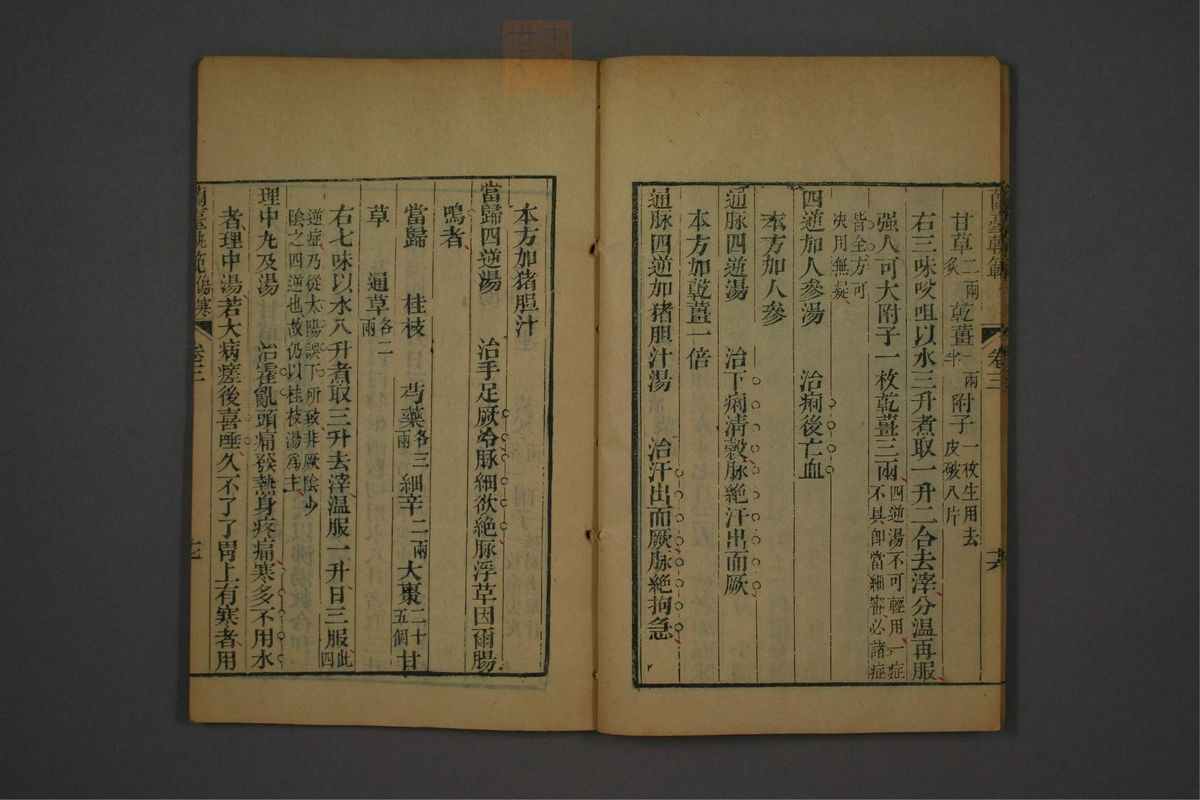 蘭臺軌範
卷三
六
甘草二兩炙 乾薑一兩半 附子一枚生用去皮破八片
右三味㕮咀以水三升煮取一升二合去滓分温再服
强人可大附子一枚乾薑三兩四逆湯不可輕用一症不具卽當細審必諸症
皆全方可决用無疑
四逆加人參湯 治痢後亡血
本方加人參
通脉四逆湯 治下痢清穀脉絶汗出而厥
本方加乾薑一倍
通脉四逆加猪胆汁湯 治汗出而厥脉絶拘急
本方加猪胆汁
當歸四逆湯 治手足厥冷脉細欲絶脉浮革因爾腸
鳴者
當歸 桂枝 芍藥各三兩 細辛二兩 大棗二十五個 甘
草 通草各二兩
右七味以水八升煮取三升去滓温服一升日三服此四
逆症乃從太陽誤下所致非厥陰少陰之四逆也故仍以桂枝湯爲主
理中丸及湯 治霍亂頭痛發熱身疼痛寒多不用水
者理中湯若大病瘥後喜唾久不了了胃上有寒者用
蘭臺軌範 傷寒
卷三
七